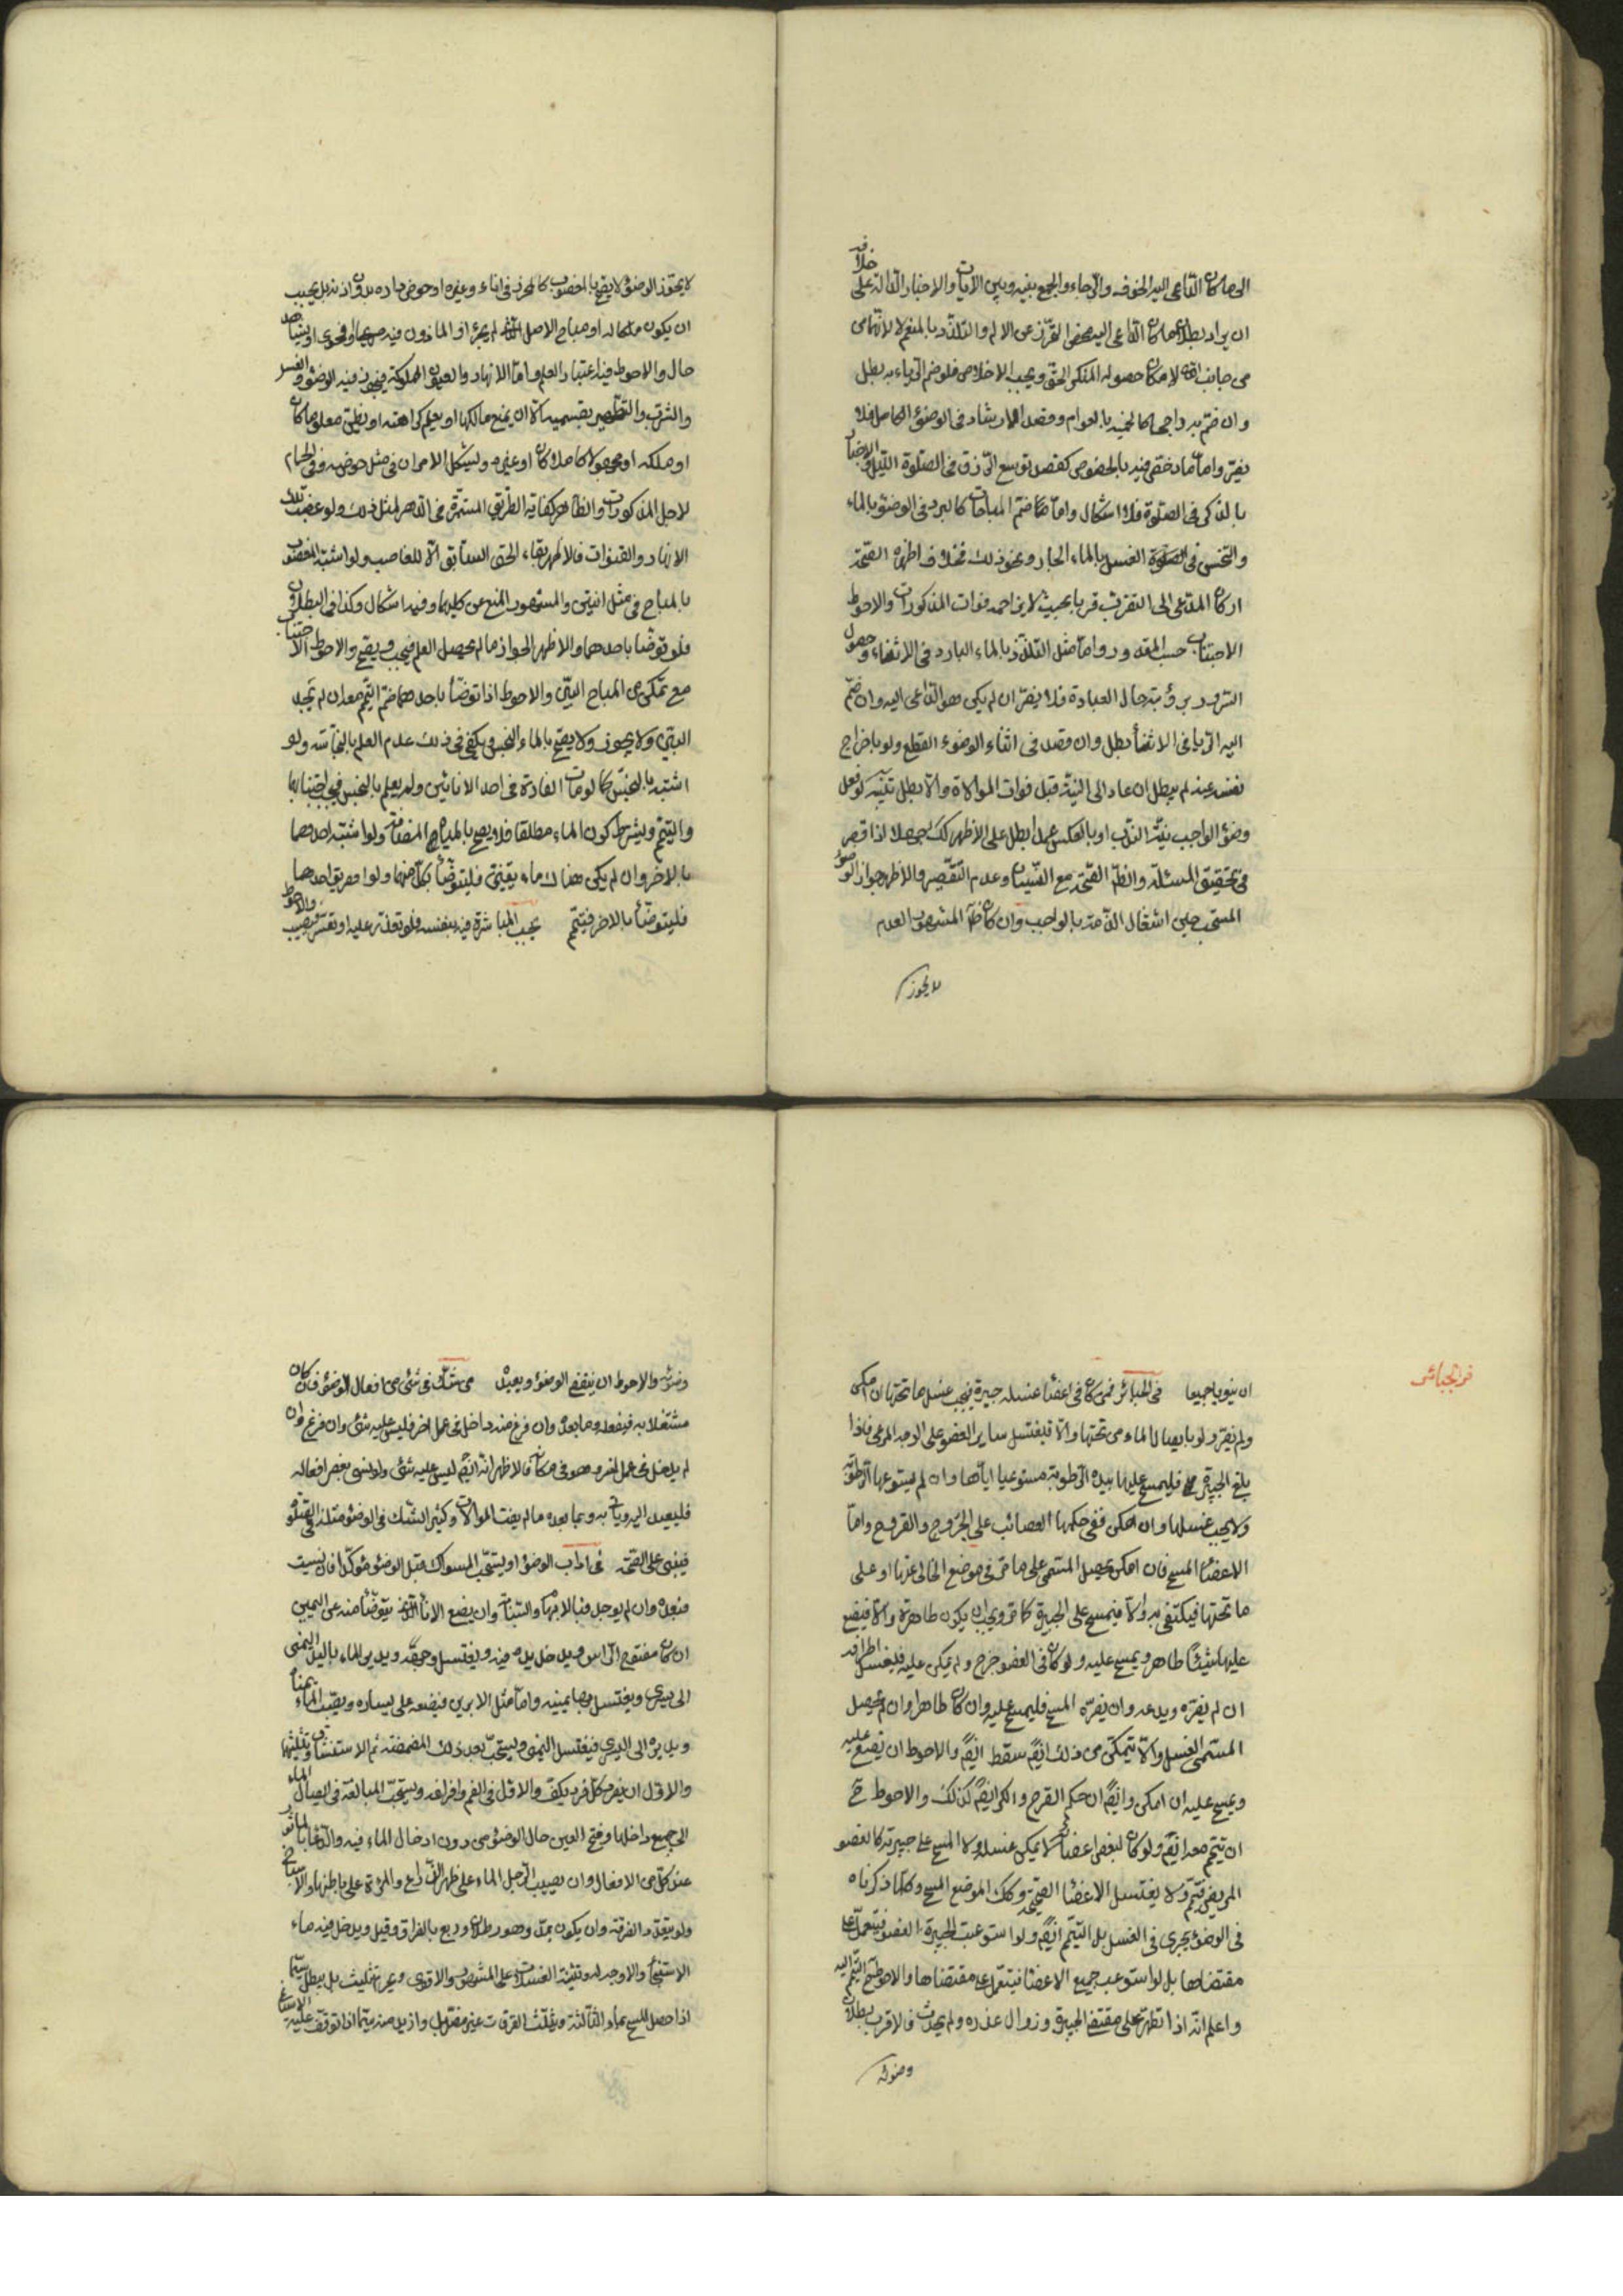 الى ما كان الداعى اليه الخوف والرجاء والجمع بينه وبين الايات والاخبار الدالة على خلافه
ان يراد بطلان ما كان الداعى اليه محض التحرز عن الالم والتلذذ بالمنعم لا لانهما من
من جانب الله لامكان حصوله المنكر الحق ويجب الاخلاص فلو ضم الرياء به بطل
وان ضم به راجحا كالحمية بالعوام وقصد الارشاد فى الوضوء الكامل فلا
يضر واما ما رخص فيه بالخصوص كقصد توسع الرزق فى الصلوة الليل والاخبار
بالذكر فى الصلوة فلا اشكال واما ما ضم المباحات كالتبرد فى الوضوء بالماء
والتسخن فى الغسل بالماء الحار ونحو ذلك فخلاف اظهره الصحة
ان كان المدعى الى التقرب قربا بحيث لا يزاحمه فوات المذكورات والاحوط
الاجتناب حسب المقدور واما مثل التلذذ بالماء البارد فى الاثناء وحصول
السرور برؤيته حال العبادة فلا يضر ان لم يكن هو الداعى اليه وان ضم
اليه الرياء فى الاثناء بطل وان قصد فى اثناء الوضوء القطع ولو باخراج
نفسه عنه لم يبطل ان عاد الى النية قبل فوات الموالاة والا بطل كنية لو فعل
وضوء الواجب بنية الندب او بالعكس عمدا بطل على الاظهر كك جهلا اذا قصر
فى تحقيق المسئلة والظاهر الصحة مع النسيان وعدم التقصير والاظهر جواز الوضوء
المستحب حين اشتغال الذمة بالواجب وان كان ظاهر المشهور العدم
لا يجوز
لا يجوز الوضوء لا يصح بالمغصوب كالمحرز فى اناء وغيره او حوض باره بدون اذنه بل يجب
ان يكون ملكا له او مباح الاصل او الماذون فيه صريحا او فحوى او بشاهد
حال والاحوط فيه اعتبار العلم واما الانهار والعيون المملوكة فيجوز فيه الوضوء والغسل
والشرب والتطهير بقسميه الا ان يمنع مالكها او يعلم كراهته او يظن معلوما كان
او ملكه او مجهولا كاملا كان او غيره ويشكل الامران فى مثل حوضه وفى الحمام
لاجل المذكورات والظاهر كفاية الطريق المستمرة فى الدهر لمثل ذلك ولو غصبت تلك
الانهار والقنوات فالاظهر بقاء الحق السابق الا للغاصب ولو اشتبه المغصوب
بالمباح فى مثل انيتين والمشهور المنع عن كليهما وفيه اشكال وكذا فى البطلان
فلو توضا باحدهما والاظهر الجواز ما لم يحصل العلم فيجب ويصح والاحوط الاجتناب
مع تمكن من المباح البين والاحوط اذا توضأ باحدهما ضم التيمم معه ان لم يجد
البين ولا يجوز ولا يصح بالماء النجس ويكفى فى ذلك عدم العلم بالنجاسة ولو
اشتبه بالنجس كما لو مات الفارة فى احد الانائين ولم يعلم بالنجس فيجب اجتنابهما
والتيمم ويشرط كون الماء مطلقا فلا يصح بالمياه المضافة ولو اشتبه احدهما
بالاخر وان لم يكن هناك ماء يقينى فليتوضأ بكل منهما ولو اهريق احدهما
فليتوضأ بالاخر فيتمم يجب المباشرة فيه بنفسه فلو تعذر عليه او تعسر فيصيب والاحوط
فى الجبائر
ان ينويا جميعا فى الجبائر فمن كان فى اعضاء غسله جبيرة فيجب غسل ما تحتها ان امكن
ولم يضر ولو بايصال الماء من تحتها والا فيغتسل ساير العضو على الوجه المرعى فاذا
بلغ الجبيرة فليمسح عليها بيده الرطوبة مستوعبا اياها وان لم يستوعبها الرطوبة
ولا يجب غسلها وان امكن ففى حكمها العصائب على الجروح والقروح واما
الاعضاء المسح فان امكن يحصل المسمى على ما مر فى موضع الخالى عنها او على
ما تحتها فيكتفى به والا فيمسح على الجبيرة كما مر ويجب ان يكون طاهرة والا فيضع
عليها شيئا طاهر ويمسح عليه ولو كان فى العضو جرح ولم يكن عليه فليغسل اطرافه
ان لم يضره ويدعه وان يضره المسح فليمسح عليه وان كان طاهرا وان لم يحصل
المسمى الغسل والا يتمكن من ذلك ايضا سقط ايضا والاحوط ان يضع عليه
ويمسح عليه ان امكن وايضا ان حكم القرح والكسر ايضا كذلك والاحوط ح
ان تيمم معه ايضا ولو كان لبعض اعضائه لا يمكن غسله ولا المسح على جبيرته كالعضو
المريض تيمم ولا يغتسل الاعضاء الصحيحة وكك الموضع المسح وكلما ذكرناه
فى الوضوء يجرى فى الغسل بل التيمم ايضا ولو استوعبت الجبيرة العضو فيعمل على
مقتضاها بل لو استوعب جميع الاعضاء فيعمل على مقتضاها والاحوط ضم التيمم اليه
واعلم انه اذا تطهر على مقتضى الجبيرة وزوال عذره ولم يحدث فالاقرب بطلان
وضوئه
وضوئه والاحوط ان ينقض الوضوء ويعيد من شك فى شئ من افعال الوضوء فان كان
مشتغلا به فيفعله وما بعده وان فرغ منه داخل فى عمل اخر فليس عليه شئ وان فرغ وان
لم يدخل فى عمل اخر وهو فى مكانه فالاظهر انه ايضا ليس عليه شئ ولو نسى بعض افعاله
فليعد اليه وياتى به وبما بعده ما لم يفت الموالات وكثير الشك فى الوضوء مثله فى الصلوة
فيبنى على الصحة فى اداب الوضوء اويستحب المسواك قبل الوضوء مؤكدا فان نسيت
فبعده وان لم يوجد فبالابهام والسبابة وان يضع الاناء الذى يتوضأ منه عن اليمين
ان كان مفتوح الراس ويدخل يده فيه ويغتسل وجهه ويدير الماء باليد اليمنى
الى يسرى ويغتسل بها يمينه واما مثل الابريق فيضعه على يساره ويصب الماء يمينا
ويديره الى اليسرى فيغتسل اليمنى ويستحب بعد ذلك المضمضة ثم الاستنشاق وتثليثهما
والاول ان يغرف كل فرد بكف والاول فى الفم وافراغه ويستحب المبالغة فى ايصال الماء
الى جميع داخلها وفتح العين حال الوضوء من دون ادخال الماء فيه والدعاء بالماثور
عند كل من الافعال وان يصيب الرجل الماء على ظهر الذراع والمرئة على باطنها والاسباغ
ولو بتعدد الغرفة وان يكون بمد وهو رطلان وربع بالعراقى وقيل ويدخل فيه ماء
الاستنجاء والاوجه له وتثنية الغسلات على المشهور والاقوى وغير تثليث بل يبطل سيما
اذا حصل المسح بماء الثالثة وتثليث الغرفات غير مفضل وازيد منه سيما اذا توقف عليه الاسباغ